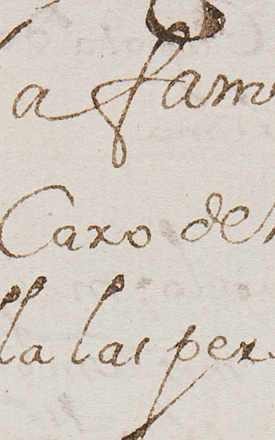 a fam
Caxo de
lla las per